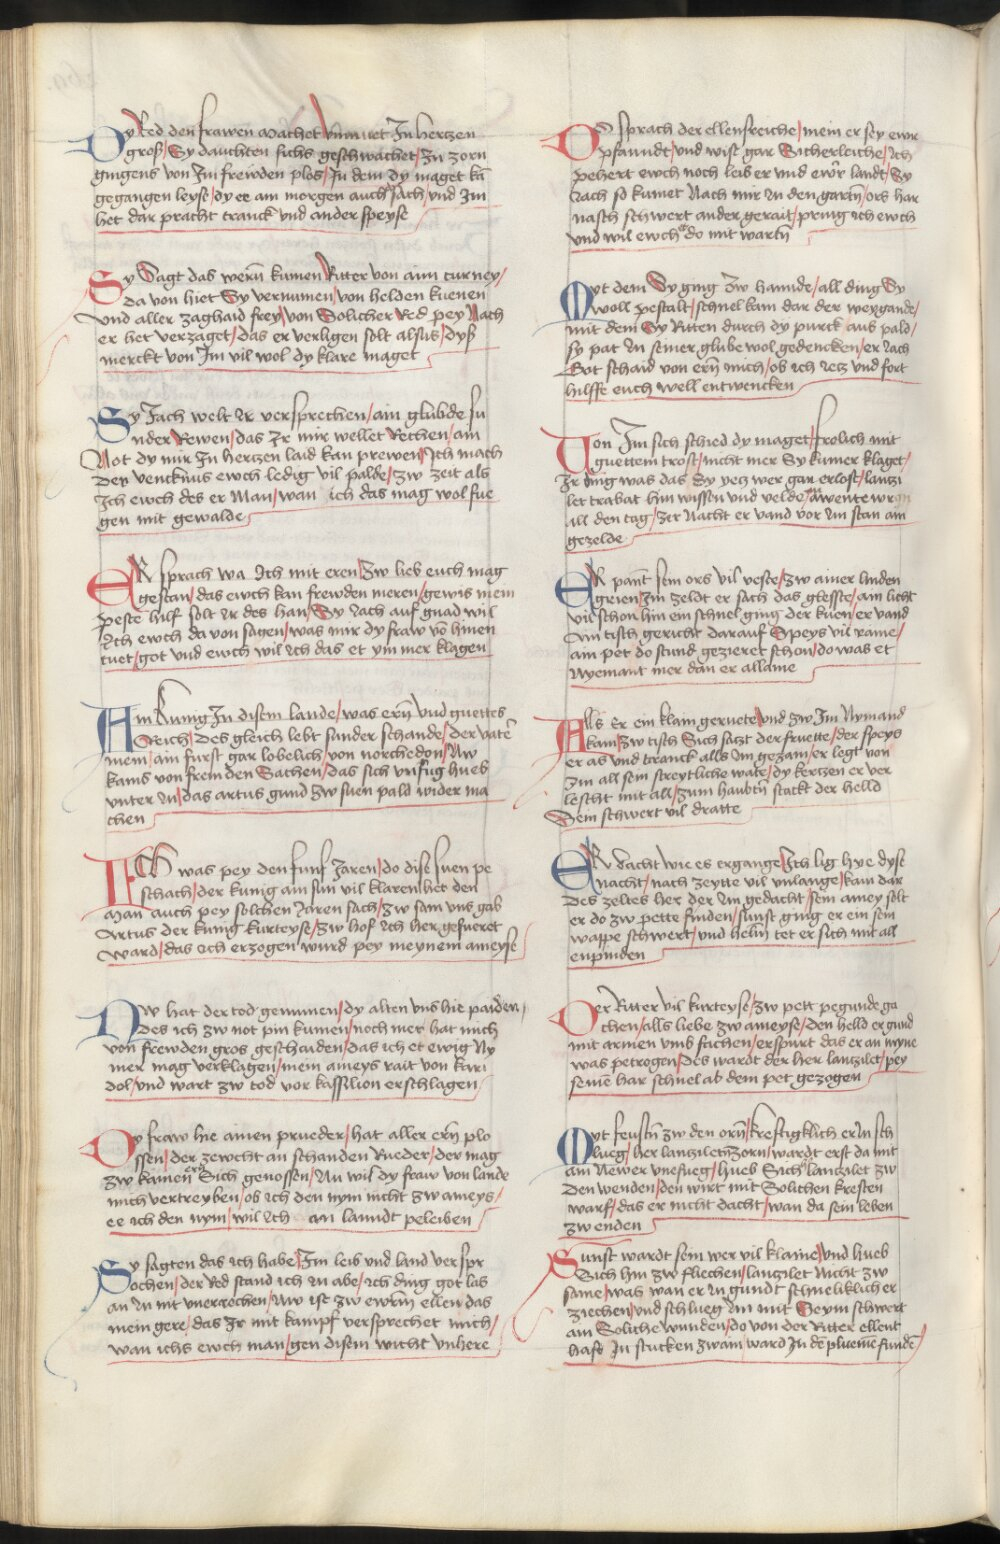 Dy Red den frawen machet vnmuet Jn hertzen
gros / Sy dauchten sichs geschwachet / Zu zorn
giengens von Jm frewden plos / Jn dem dy maget kā
gegangen leyse / dy ee am morgen auch sach / vnd Jm
het dar pracht tranck vnd ander speyse
Sy Sagt das wern̄ kumen Ritter von aim turney /
da von hiet Sy vernumen / von helden kuenen
vnd aller zaghaid frey / von Solicher Red pey Nach
er het verzaget / das er verligen solt alsus / dyß
merckt von Jm vil wol dy klare maget
Sy Jach welt Jr versprechen / ain glubde su
nder Rewen / das Jr mir wellet Rechen / ain
Not dy mir Jn hertzen laid kan prewen / Jch mach
der vencknus ewch ledig vil palde / zw zeit als
Jch ewch des er Man / wan ich das mag wol fue
gen mit gewalde
ER sprach wa Jch mit eren / zw lieb euch mag
gestan / das ewch kan frewden meren / gewis mein
peste hilf solt Jr des han / Sy Jach auf gnad wil
Jch ewch da von sagen / was mir dy fraw vō hinen
tuet / got vnd ewch wil Jch das et ymmer klagen
Ain kunig Jn disem lande / was ern̄ vnd guettes
Reich / Des gleich lebt sunder schande / der vate͛
mein / ain furst gar lobelich / von norchedon / Nw
kams von fremden Sachen / das sich vnfug hueb
vnter in / das artus gund zw suen pald wider ma
chen
ES was pey den funf Jaren / do dise suen pe
schach / der kunig ain sun vil klaren het den
man auch pey solchen Jaren sach / zw sam vns gab
Artus der kunig kurteyse / zw hof Jch her gefueret
ward / das ich erzogen wurd pey meynem ameyse
Nw hat der tod genumen / dy alten vns hie paiden /
des ich zw not pin kumen / noch mer hat mich
von frewden gros geschaiden / das ich et ewig Ny
mer mag verklagen / mein ameys rait von kari
dol / vnd wart zw tod vor kassilion erschlagen
Dy fraw hie ainen prueder / hat aller ern̄ plo
ssen / der zewcht an schanden Rueder / der mag
zw kainen ern̄ Sich genossen / Nu wil dy fraw von lande
mich vertreyben / ob ich den nym nicht zw ameys /
ee ich den nym / wil Jch an lanndt peleiben
Sy sagten das ich habe / Jm leib vnd land verspr
ochen / der Red stand ich in abe / ich ding got las
an in nit vnerrochen / Nw ist zw ewrm̄ ellen das
mein gere / das Jr mit kampf versprechet mich /
wan ichs ewch man / gen disem wicht vnhere
DO sprach der ellensreiche / mein er sey ewr
pfanndt / vnd wist gar Sicherleiche / ich
pehert ewch noch leib er vnd ewr̄ landt / Sy
Jach so kumet Nach mir in den gartn̄ / ors har
nasch schwert ander gerait / pring ich ewch
vnd wil ewch do mit wartn̄
Myt dem Sy ging zw hannde / all ding Sy
woll pestalt / schnel kam dar der weygande /
mit dem Sy Ritten durch dy purck aus pald /
sy pat in seiner glube wol gedencken / er Jach
Got schaid von ern̄ mich / ob ich ietz vnd fort
hilffe euch well entwencken
Von Jm sich schied dy maget / frolich mit
guettem trost / nicht mer Sy kumer klaget /
Jr ding was das Sy yetz wer gar erlost / lantzi
let trabat hin wissen vnd velde / awentewrn
all den tag / zet Nacht er vand vor im stan ain
gezelde
ER pant sein ors vil veste / zw ainer linden
grien / Jm zeldt er sach das glesste / ain liecht
vil schon hin ein schnel ging der kuen / er vand
ain tisch gericht darauf Speys vil raine /
ain pet do stund gezieret schon / do was et
Nyemant mer dan er allaine
Alls er ein klain geruete / vnd zw Jm Nymand
kam / zw tisch Sich satzt der fruette / der speys
er as vnd tranck alls im gezam / er legt von
Jm all sein streytliche wate / dy kertzen er ver
lescht mit all / zum haubtn̄ stackt der helld
Sein schwert vil dratte
ER dacht wie es ergange / Jch lig hye dyse
nacht / nach zeytte vil vnlange / kam dar
des zeltes her der im gedacht / sein amey solt
er do zw pette finden / sunst ging er ein sein
wappe schwert / vnd helm̄ tet er sich mit all
enpinden
Der Ritter vil kurteyse / zw pett pegunde ga
chen / alls liebe zw ameyse / den helld er gund
mit armen vmb fachen / er spurt das er an mynne
was petrogen / des wardt der her lantzilet / pey
seinē har schnel ab dem pet gezogen
Myt feustn̄ zw den orn̄ / kreftigklich er in sch
lueg / her lantziletn̄ zorn / wardt erst da mit
ain Newer vnefueg / hueb Sich lantzilet zw
den wenden / den wirt mit Solichen kreften
warf / das er nicht dacht / wan da sein leben
zw enden
Sunst wardt sein wer vil klaine / vnd hueb
Sich hin zw fliechen / lantzilet Nicht zw
saine / was wan er in gundt schneliklich er
ziechen / vnd schlueg im mit Seym schwert
ain Soliche wunden / do von der Ritter ellent
haft Jn stucken zwain / ward Jn dē pluemē funden